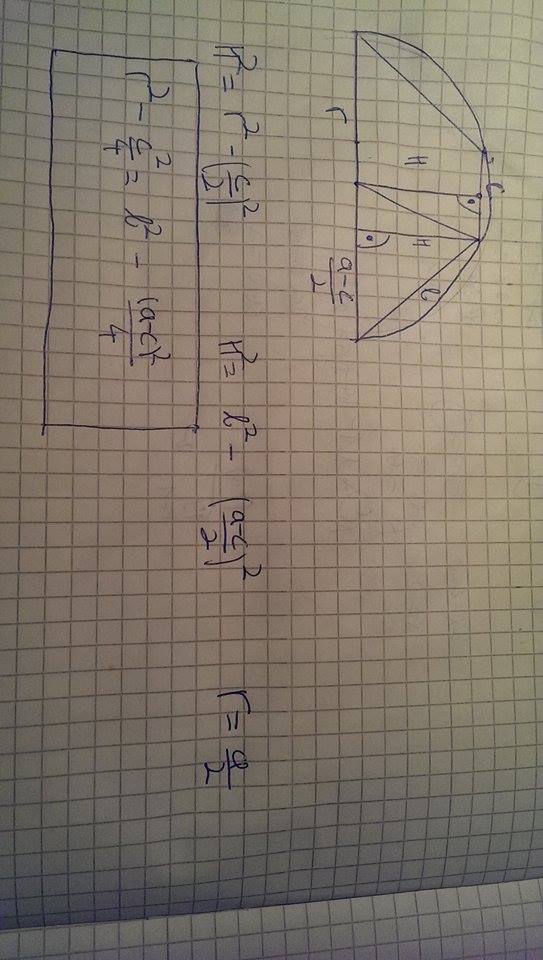 c
H H l
r (a-c)/2
H² = r² - (c/2)² H² = l² - ((a-c)/2)² r = a/2
r² - c²/4 = l² - (a-c)²/4